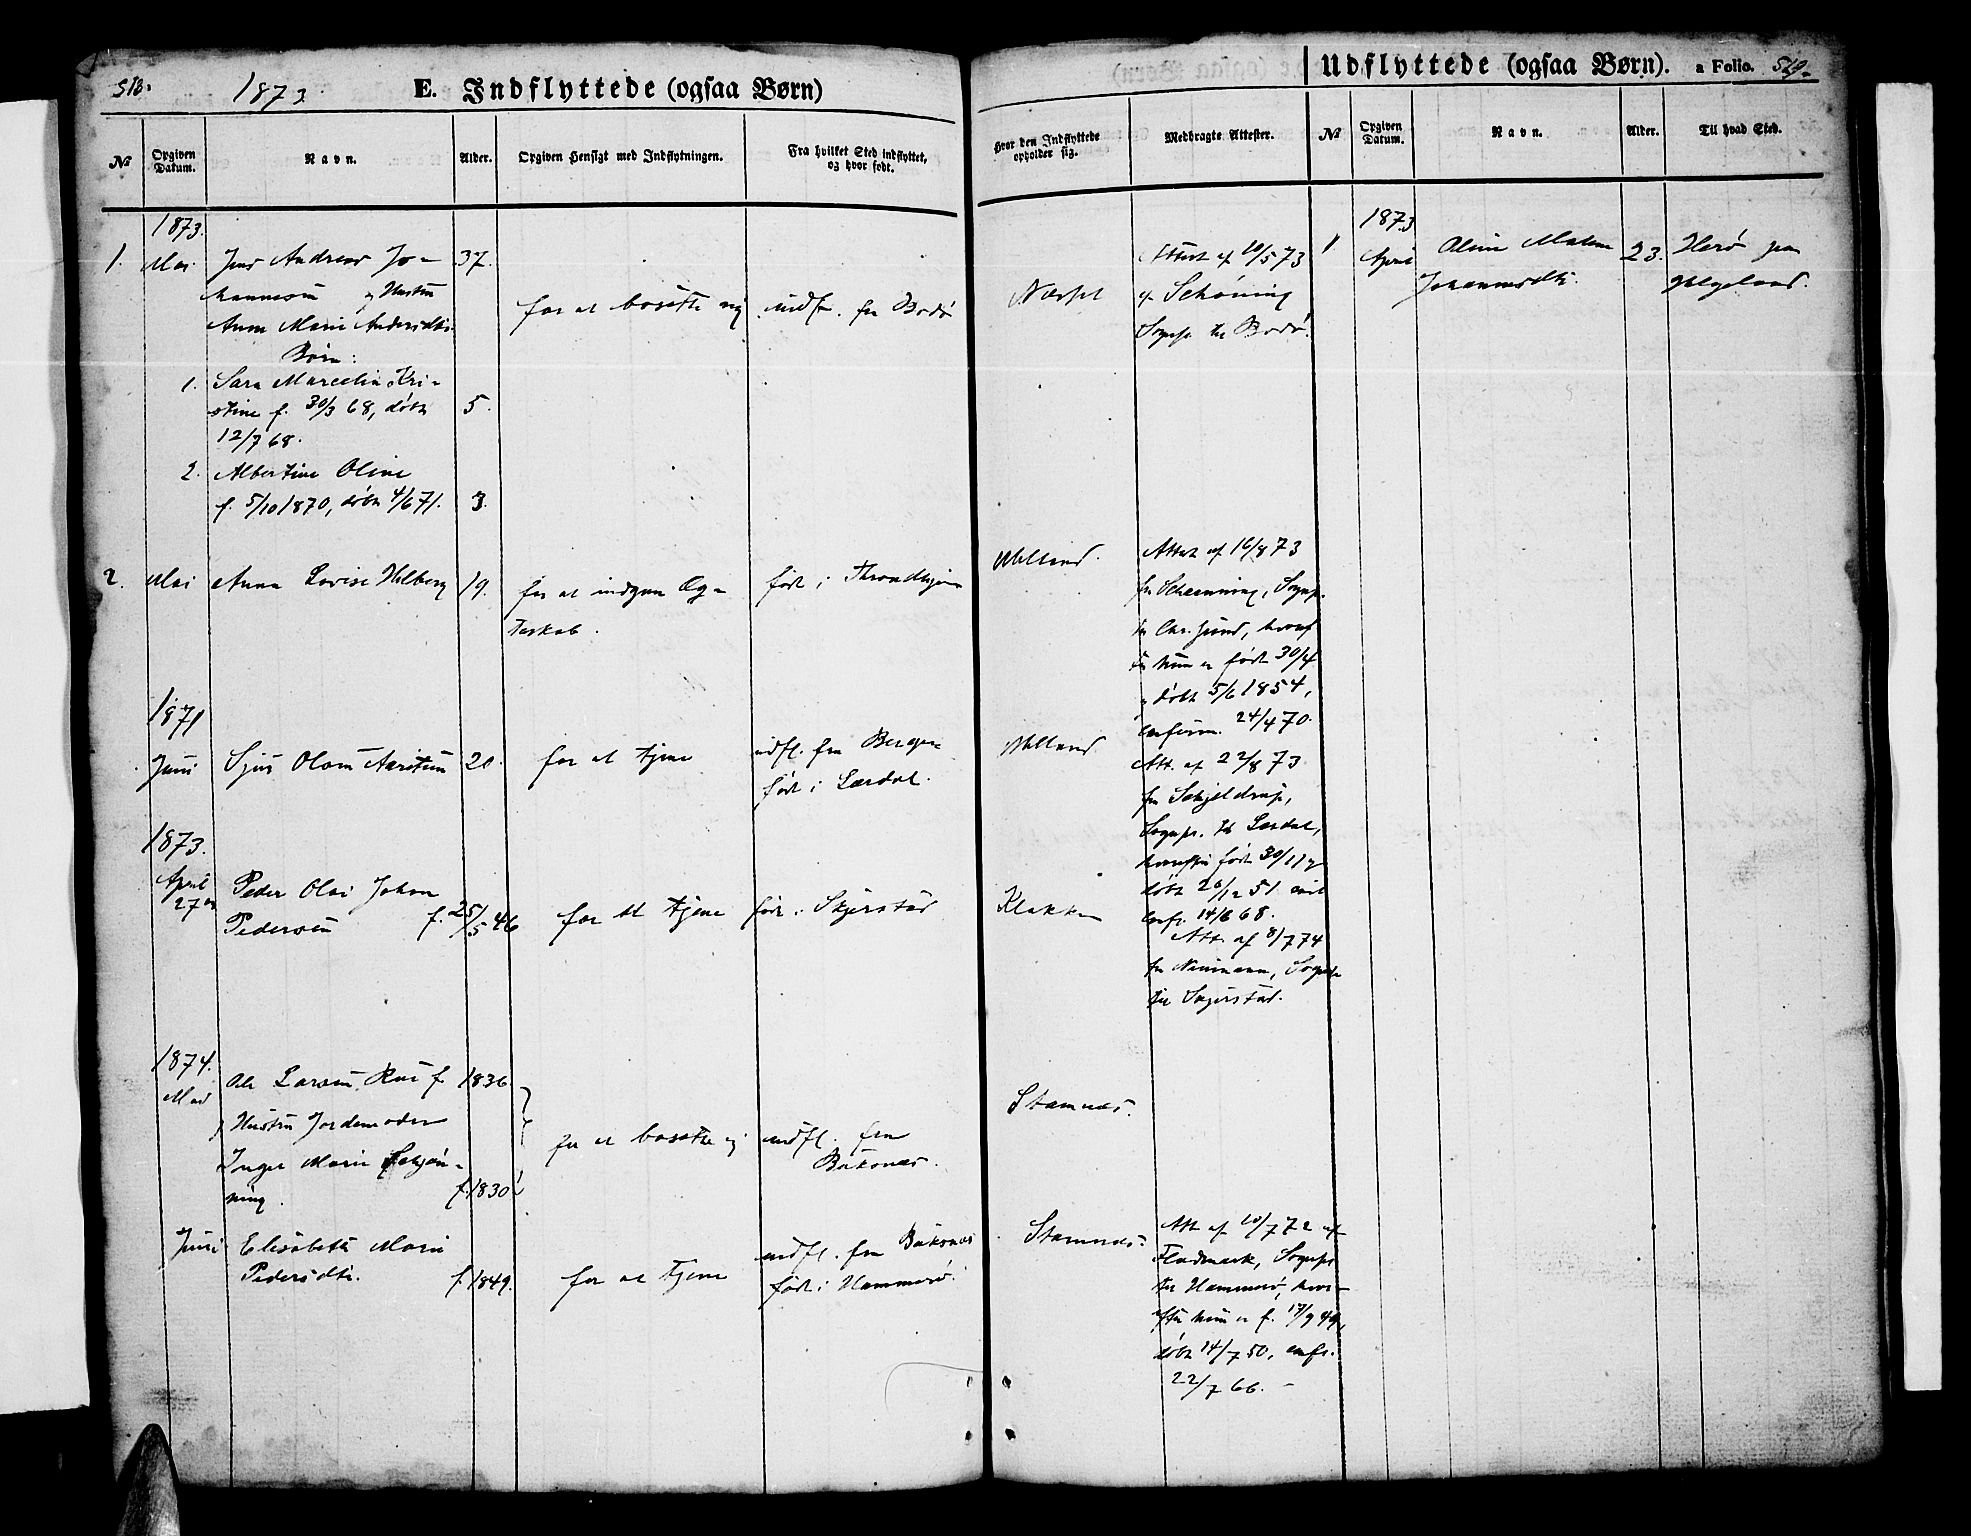 518.
1873.
E. Indflyttede (ogsaa Børn)
Udflyttede (ogsaa Børn).
a Folio. 519.
No
Opgiven Datum.
Navn.
Alder.
Opgiven Hensigt med Indflytningen.
Fra hvilket Sted indflyttet,
og hvor født.
Hvor den Indflyttede
opholder sig.
Medbragte Attester.
No
Opgiven Datum.
Navn.
Alder.
Til hvad Sted.
1873.
1. Mai. Jens Andreas Jo- 37.
hannesen og Hustru
Anna Marie Andersdtr.
Børn:
1. Sara Marcelia Kri-
stine f. 30/3 68, døbt 5.
12/7 68.
2. Albertine Oline
f. 5/10 1870, døbt 4/6 71. 3.
for at bosætte sig
indfl. fra Bodø
Attest af 10/5 73
af Schöning
Sognepr. til Bodø.
1873
1 April Oline
Johannesdtr.
23.
Herø paa
Helgeland.
2. Mai Anna Lovise Holberg 19.
for at indgaa Æg-
teskab.
født i Throndhjem
Attest af 16/8 73
Sognep.
født 30/4
døbt 5/6 1854,
confirm. 24/4 70.
1871
Juni Sjur Olsen 20.
for at tjene
indfl. fra Bergen
født i Lærdal.
Att. af 22/8 73
fra Schjeldrup,
Sognepr. til Lærdal,
født 30/11 og
døbt 26/12 51
conf. 14/6 68.
1873.
April
27de
Peder Olai Johan
Pedersen f. 25/5 46
for at tjene
født i Skjerstad
Klakken
Att. af 8/7 74
fra Neumann, Sognepr.
til Skjerstad.
1874.
Mai
Ole Larsen f. 1836.
og Hustru Jordemoder
Inger Marie Schjøn-
ning. f. 1830
for at bosætte sig
indfl. fra
Buksnæs.
Stamnæs.
Juni Elisabeth Marie
Pedersdtr. f. 1849.
for at tjene
indfl. fra Buksnæs
født i Hammerø.
Stamnæs.
Att. af 10/7 72 af
Fladmark, Sognepr.
til Hammerø, hvor-
efter hun er f. 17/9 49,
døbt 14/7 50, conf.
22/7 66. -